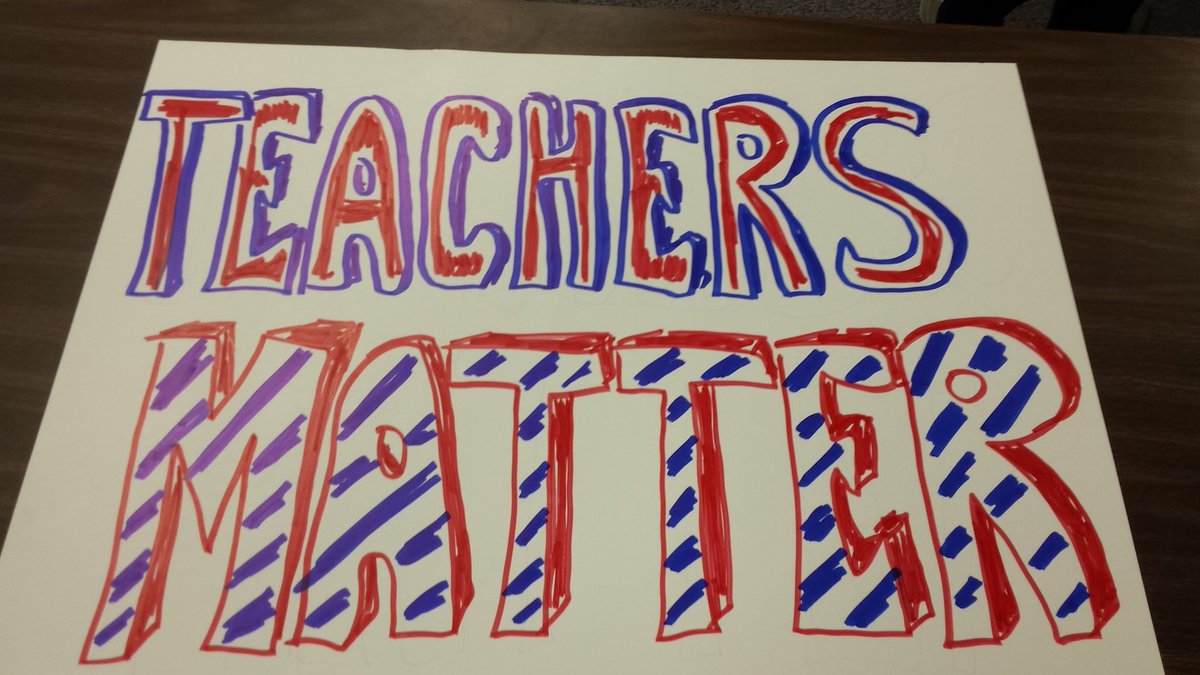 TEACHERS
MATTER